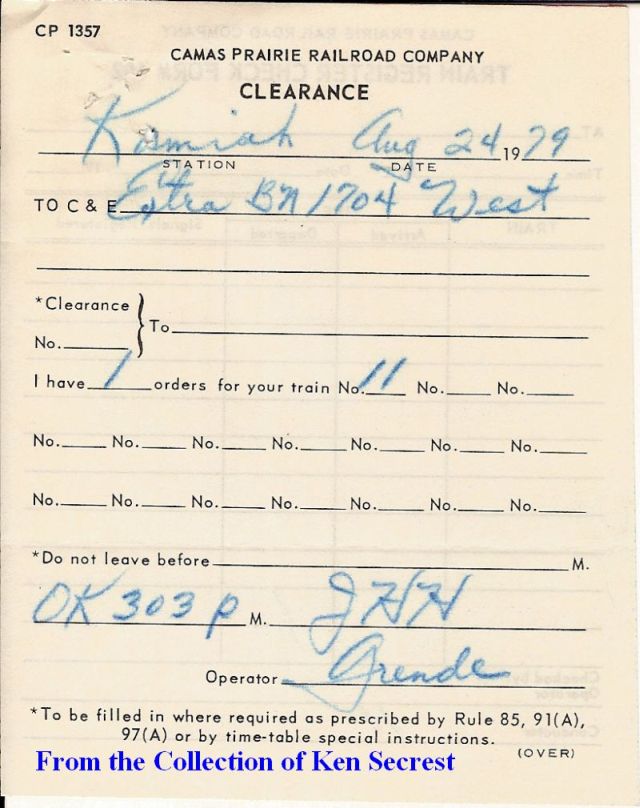 CP 1357
CAMAS PRAIRIE RAILROAD COMPANY
CLEARANCE
Kamiah Aug 24 1979
STATION DATE
TO C & E Extra BN 1704 West
*Clearance
No. } To
I have 1 orders for your train No. 11 No. No.
No. No. No. No. No. No. No.
No. No. No. No. No. No. No.
*Do not leave before M.
OK 303 P M. JHH
Operator Grende
*To be filled in where required as prescribed by Rule 85, 91(A),
97(A) or by time-table special instructions.
(OVER)
From the Collection of Ken Secrest